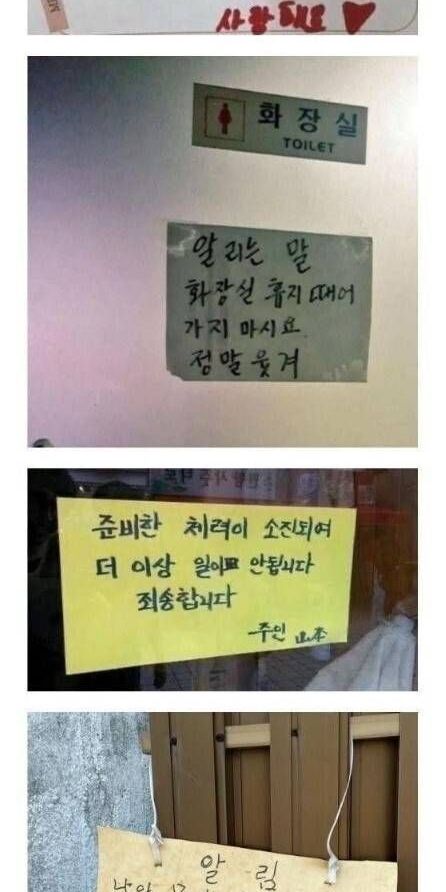 사랑해요
화장실
TOILET
알리는 말
화장실 휴지 때어
가지 마시요
정말 웃겨
준비한 체력이 소진되여
더 이상 일이 안됩니다
죄송합니다
주인 山本
알 림